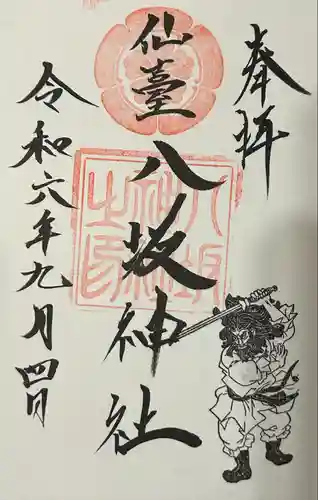 奉拝
仙臺
八坂神社
令和六年九月四日
八坂神社之印